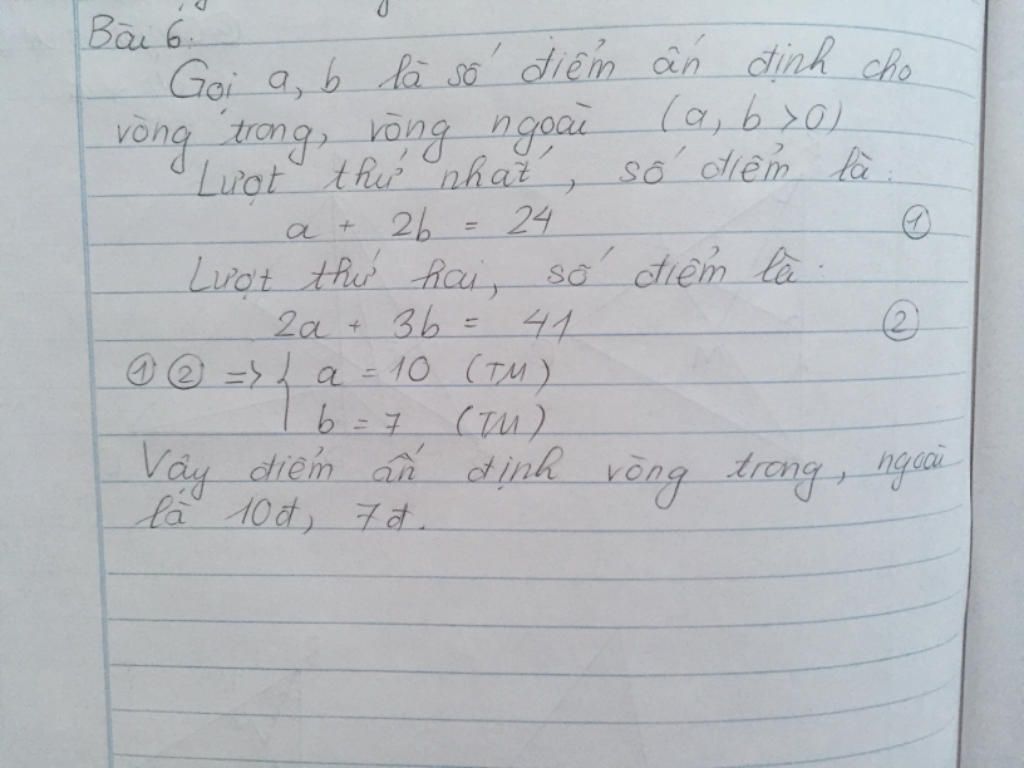 Bài 6:
Gọi a, b là số điểm ấn định cho
vòng trong, vòng ngoài (a, b > 0)
Lượt thứ nhất, số điểm là:
a + 2b = 24 ①
Lượt thứ hai, số điểm là:
2a + 3b = 41 ②
① ② => { a = 10 (TM)
b = 7 (TM)
Vậy điểm ấn định vòng trong, ngoài
là 10đ, 7đ.